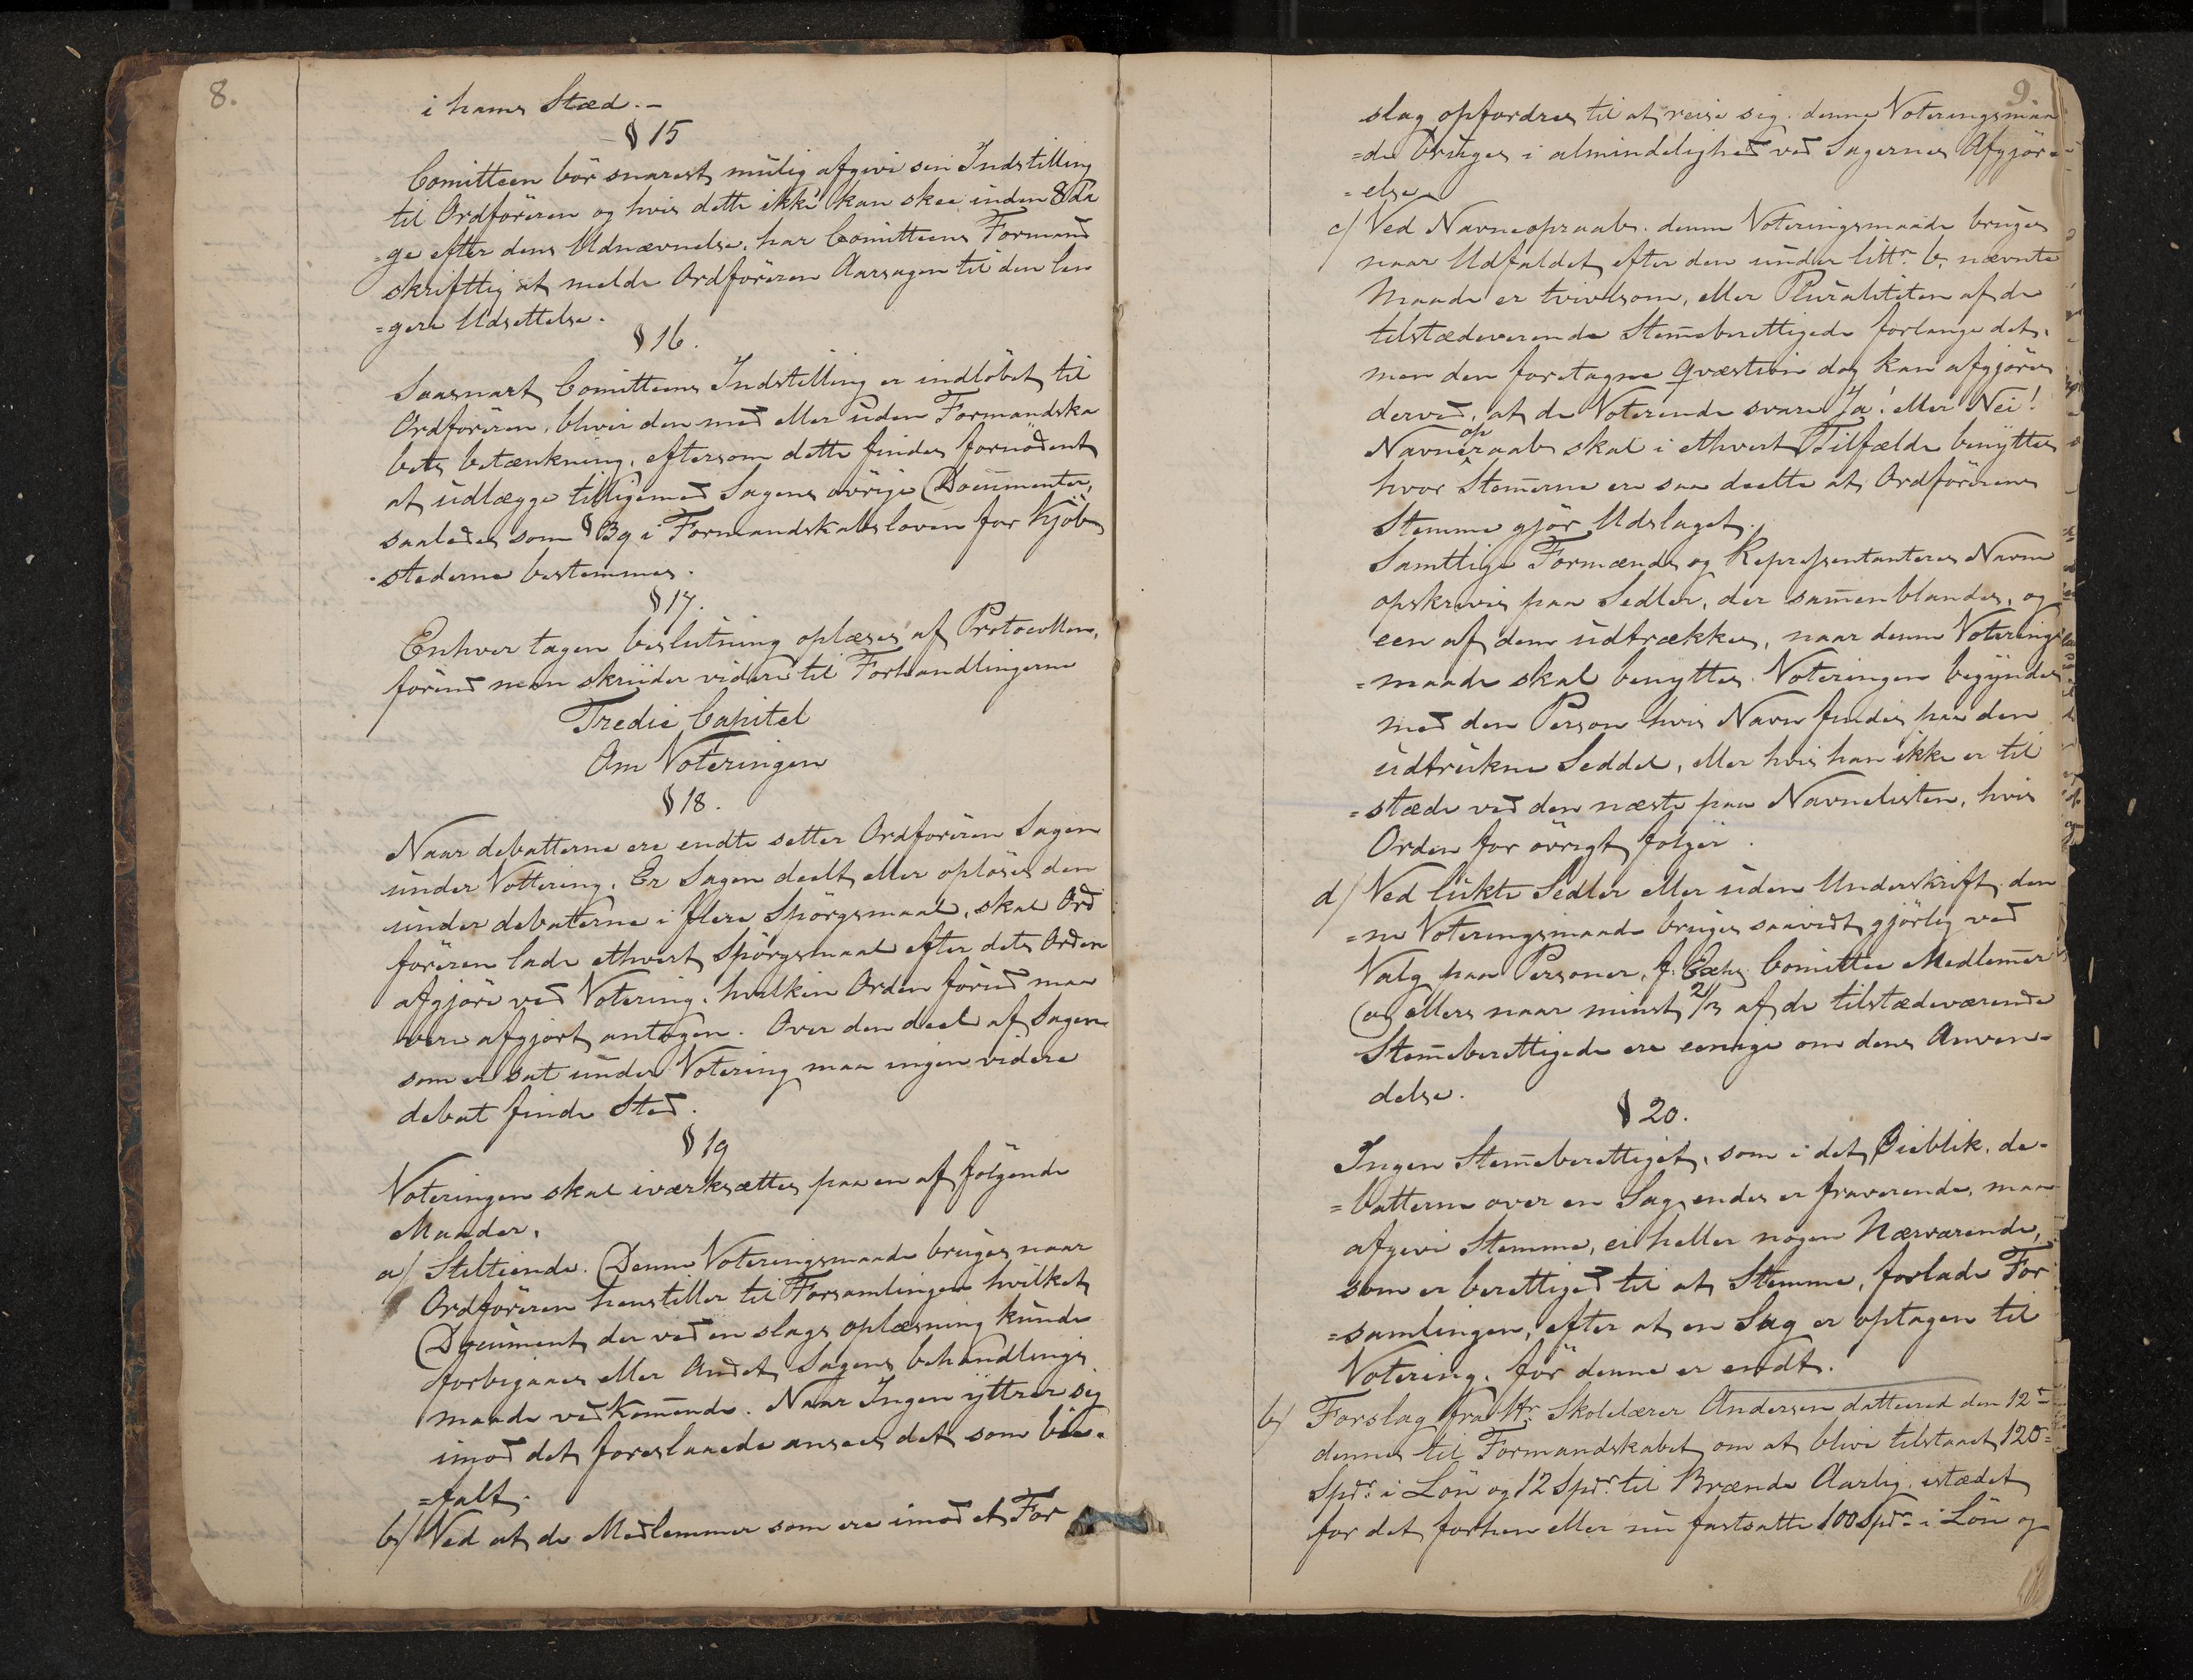 8.
i hans Stæd.-
§ 15
Comitteen bör snarest mulig afgive sin Indstilling
til Ordföreren og hvis dette ikke kan skee inden 8 Da
=ge efter dens Udnævnelse, har Comitteens Formand
skriftlig at melde Ordföreren Aarsagen til den læn
=gere Udsettelse.
§ 16.
Saasnart Comitteens Indstilling er indløbet til
Ordföreren, bliver den med eller uden Formandska
bets betænkning, eftersom dette findes fornødent
at udlægge tilligemed Sagens øvrige Documenter,
saaledes som § 39 i Formandskabsloven for Kjöb
=stederne bestemmes.
§ 17.
Enhver tagen beslutning oplæses af Protocollen,
förend man skrider videre til Forhandlingerne
Tredie Capitel
Om Voteringen
§ 18.
Naar debatterne ere endte setter Ordföreren Sagen
under Vottering. Er Sagen deelt eller opløses den
under debatterne i flere Spörgsmaal, skal Ord
föreren lade ethvert Spörgsmaal efter dets Orden
afgjöre ved Votering, hvilken Orden forud maa
være afgjort antagen. Over den deel af Sagen
som er sat under Votering maa ingen videre
debat finde Sted.
§ 19
Voteringen skal iværksættes paa en af følgende
Maader.
a/ Stiltiende. Denne Voteringsmaade bruges naar
Ordföreren henstiller til Forsamlingen hvilket
Document der ved en slags oplæsning kunde
forbigaaes eller Andet Sagens behandlings
maade vedkommende. Naar Ingen yttrer sig
imod det foreslaaede ansees det som bi-
=falt.
b/ Ved at de Medlemmer som ere imod et For
9.
slag opfordres til at reise sig. denne Voteringsmaa
=de bruges i almindelighed ved Sagernes Afgjör-
=else.
c/ Ved Navneopraab. denne Voteringsmaade bruges
naar Udfaldet efter den under littr. b. nævnte
Maade er tvivlsom, eller Pluraliteten af de
tilstædeverende Stemeberettigede forlange det,
men den foretagne Qvæstion dog kan afgjöres
derved, at de Voterende svare Ja! eller Nei!
op
Navneraab skal i ethvert Tilfælde benyttes
hvor Stemerne ere saa deelte at Ordförerens
Stemme gjör Udslaget.
Samtlige Formænds og Repræsentanteres Navne
opskrives paa Sedler, der samenblandes, og
een af dem udtrækkes, naar denne Voterings
=maade skal benyttes. Voteringen begyndes
med den Person hvis Navn findes paa den
udtrukne Seddel, eller hvis han ikke er til
=stæde ved den næste paa Navnelisten, hvis
Orden for övrigt følges.
d/ Ved lukte Sedler eller uden Underskrift, den
=ne Voteringsmaade bruges saavidt gjörlig ved
Valg paa Personer, f. Ex. Comittee Medlemer
og ellers naar minst 2/3 af de tilstædeværende
Stemeberettigede ere eenige om dens Anven-
delse.
§ 20.
Ingen Stemeberettiget, som i det Øieblik, de-
=batterne over en Sag endes er fraverende, maa
afgive Stemme, ei heller nogen Nærværende,
som er berettiged til at Stemme, forlade For
=samlingen, efter at en Sag er optagen til
Votering, för denne er endt.
b/ Forslag fra Hr. Skolelærer Andersen datteret den 12te
dennes til Formandskabet om at blive tilstaaet 120=
Spdr. i Lön og 12 Spdr. til Brænde Aarlig, istædet
for det forhen eller nu fastsatte 100 Spdr. i Lön og